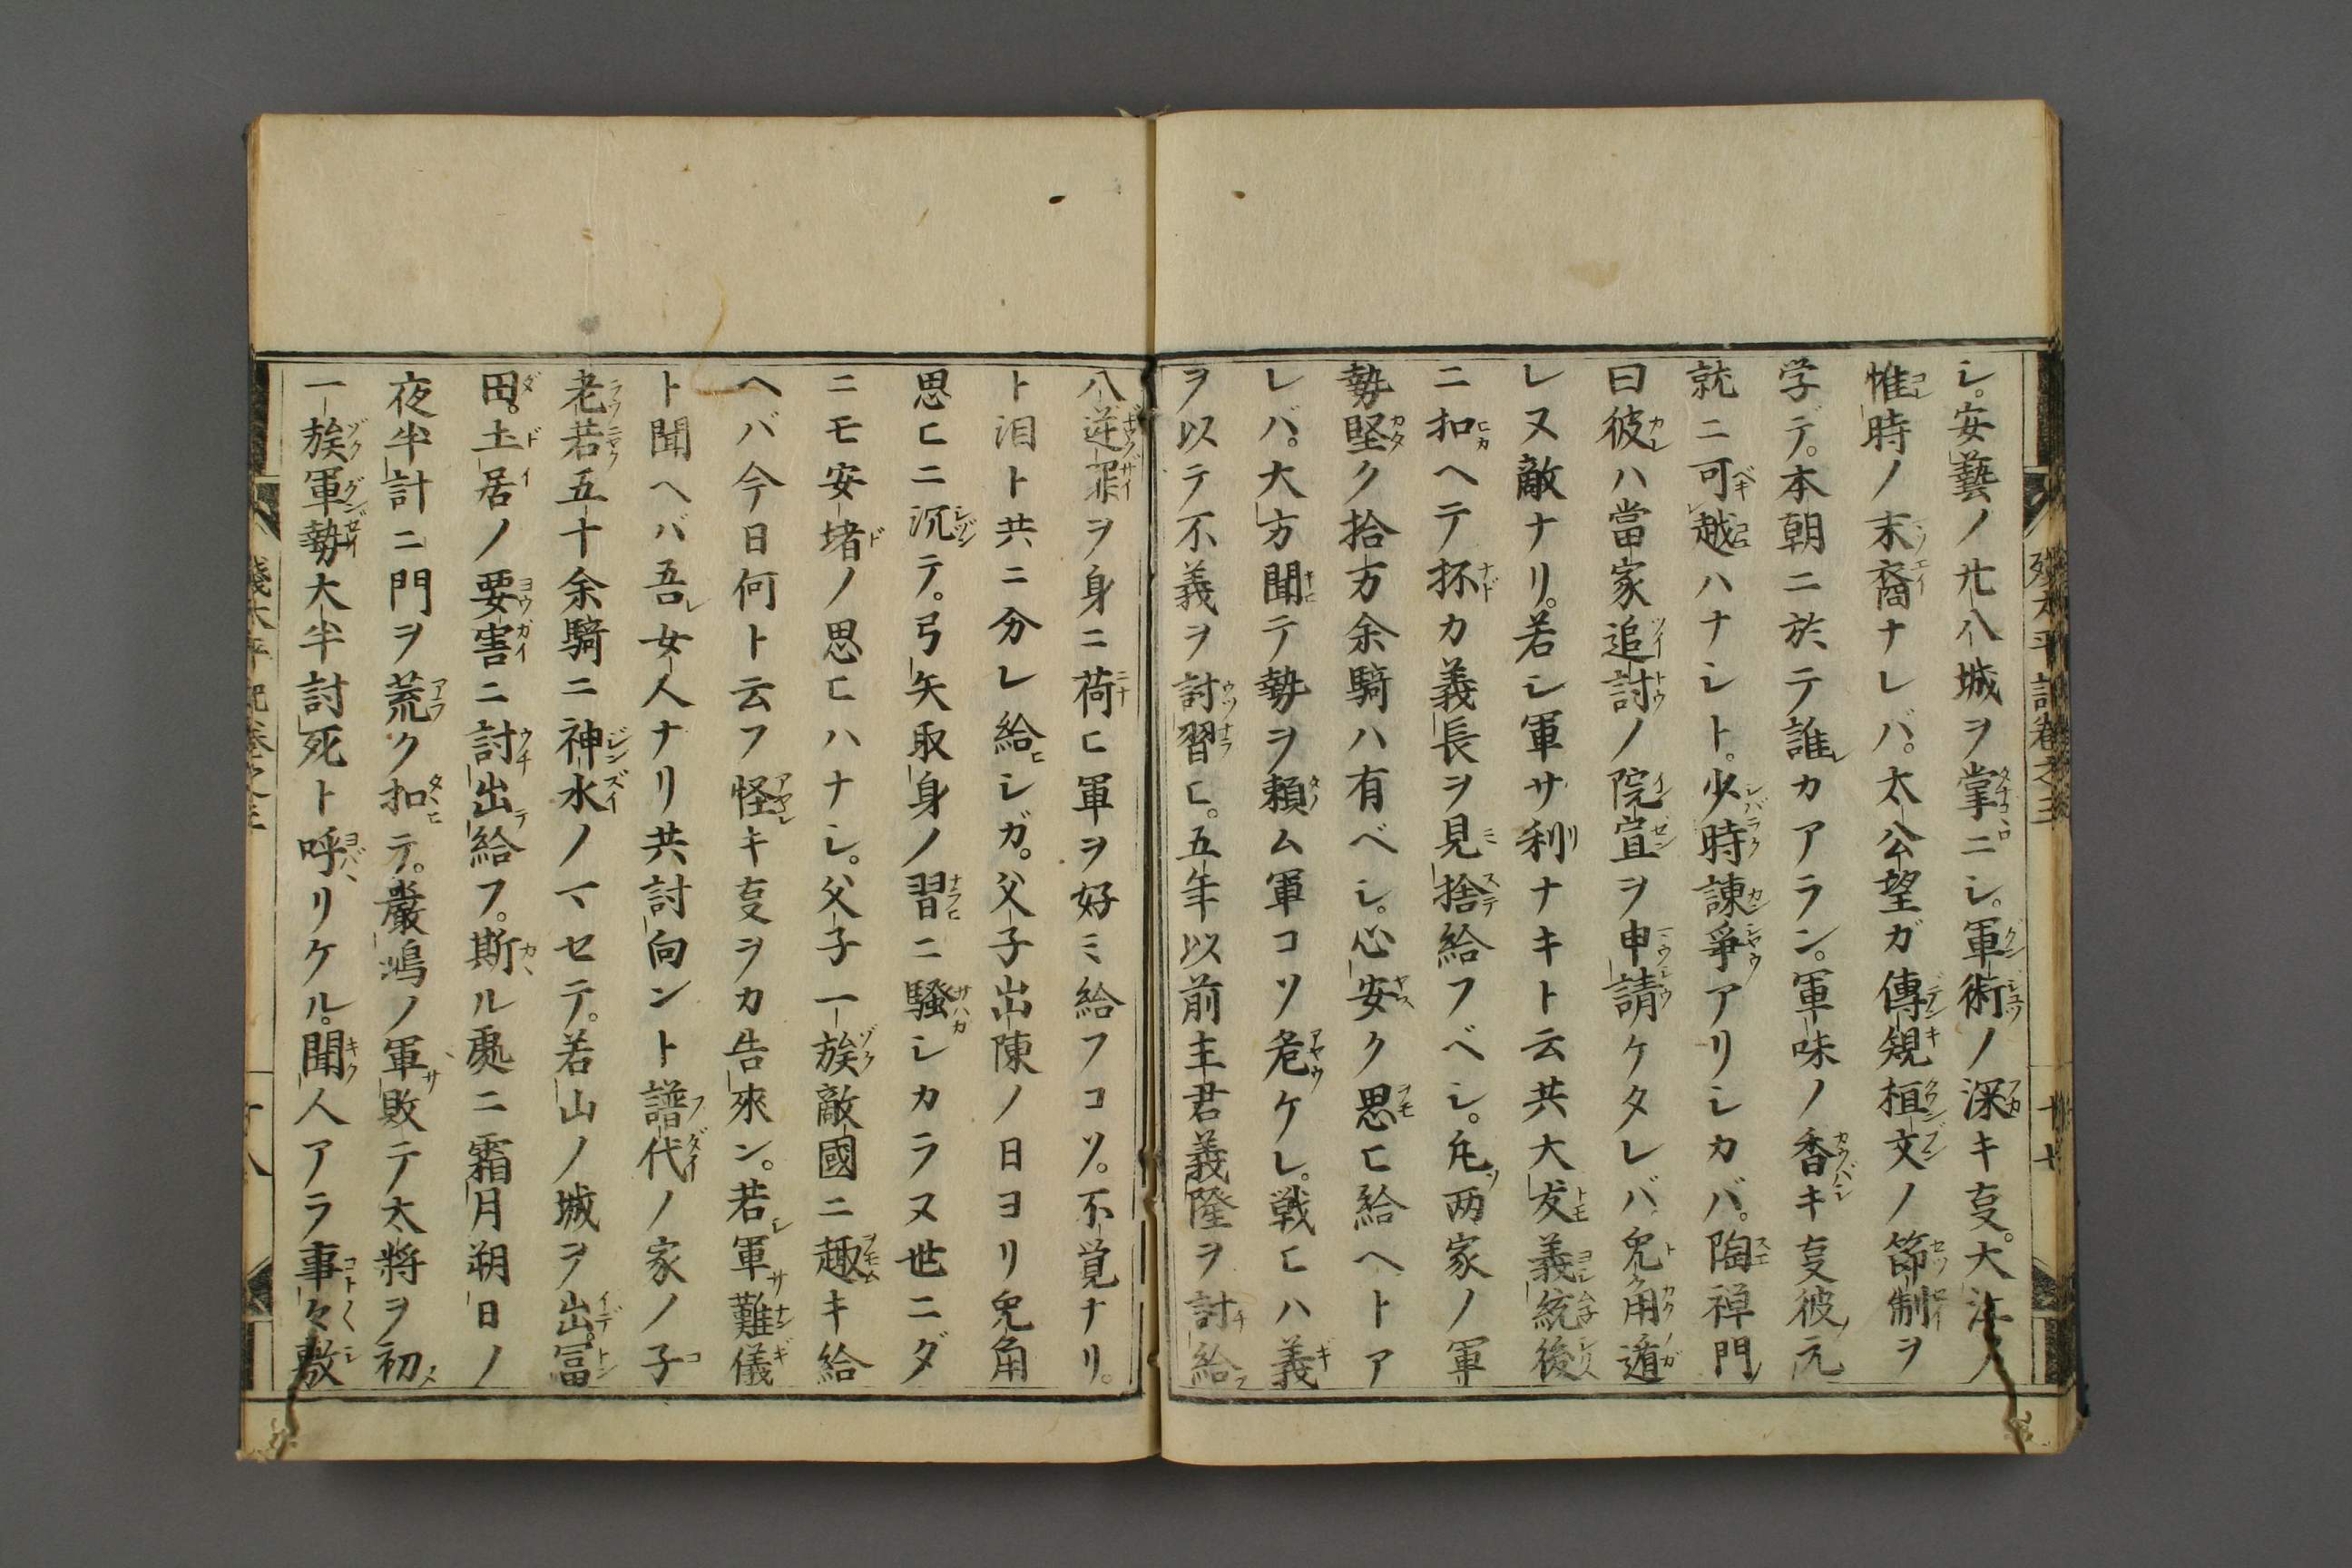 シ。安藝ノ廿八城ヲ掌ニシ。軍術ノ深キ夏。大江ノ
惟時ノ末裔ナレバ。太公望ガ傳䂓桓文ノ節制ヲ
学デ。本朝ニ於テ誰カアラン。軍味ノ香キ夏彼元
就ニ可越ハナシト。少時諫爭アリシカバ。陶禅門
曰彼ハ當家追討ノ院宣ヲ申請ケタレバ兎角遁
レヌ敵ナリ。若シ軍サ利ナキト云共大友義統後
ニ扣ヘテ抔カ義長ヲ見捨給フベシ。凢两家ノ軍
勢堅ク拾万余騎ハ有ベシ。心安ク思ヒ給ヘトア
レバ。大方聞テ勢ヲ頼ム軍コソ危ケレ。戦ヒハ義
ヲ以テ不義ヲ討習ヒ。五年以前主君義隆ヲ討給
八逆罪ヲ身ニ荷ヒ軍ヲ好ミ給フコソ。不覚ナリ。
ト泪ト共ニ分レ給シガ。父子出陳ノ日ヨリ兎角
思ヒニ沉テ。弓矢取身ノ習ニ騒シカラヌ世ニダ
ニモ安堵ノ思ヒハナシ。父子一族敵國ニ趣キ給
ヘバ今日何ト云フ怪キ夏ヲカ告來ン。若軍難儀
ト聞ヘバ吾女人ナリ共討向ント譜代ノ家ノ子
老若五十余騎ニ神水ノマセテ。若山ノ城ヲ出。冨
田。土居ノ要害ニ討出給フ。斯ル處ニ霜月朔日ノ
夜半計ニ門ヲ荒ク扣テ。嚴嶋ノ軍敗テ太將ヲ初
一族軍勢大半討死ト呼リケル。聞人アラ事々敷